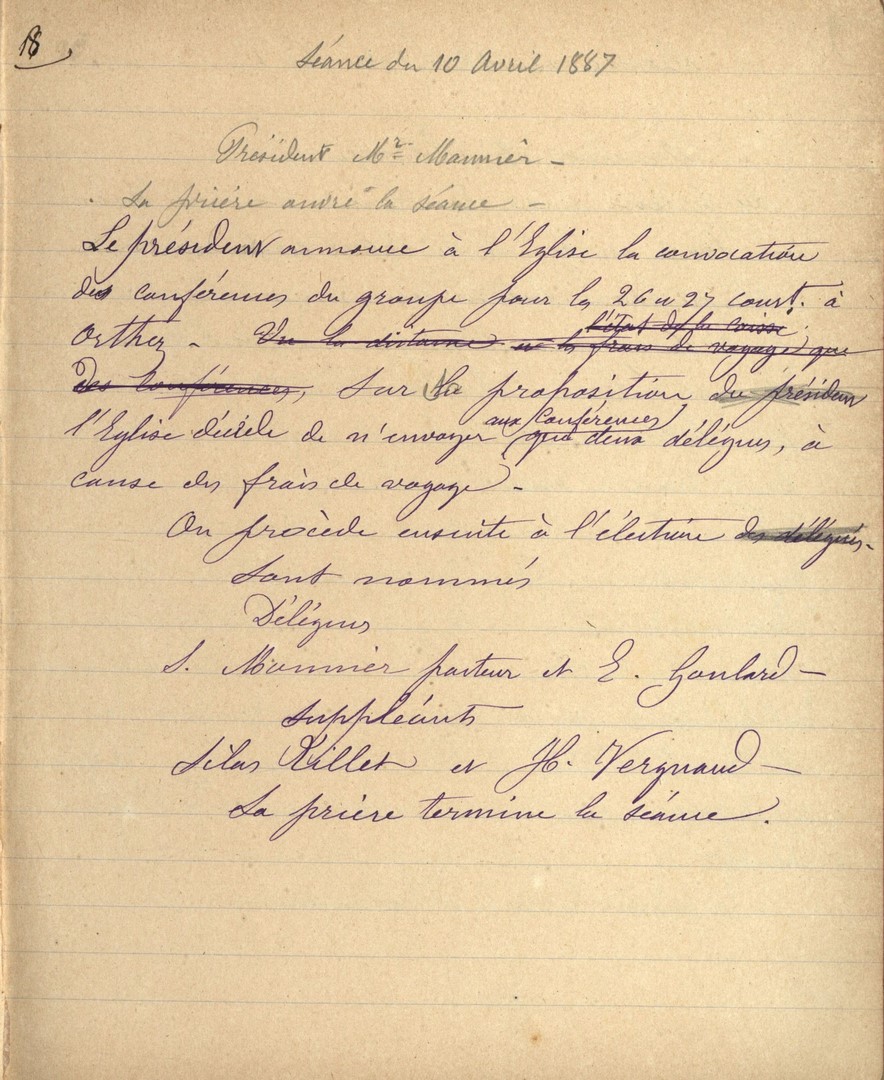 18
Séance du 10 Avril 1887
Président Mr. Monnier –
La prière ouvre la séance –
Le président annonce à l'Eglise la convocation
des conférences du groupe pour les 26 et 27 court. à
l'état de la caisse
Orthez – Vu la distance et les frais de voyage que
des conférences, Sur la proposition du président
aux Conférences
l'Eglise décide de n'envoyer que deux délégués, à
cause des frais de voyage –
On procède ensuite à l'élection des délégués.
Sont nommés
Délégués
S. Monnier pasteur et E. Goulard –
Suppléants
Silas Rillet et H. Vergnaud –
La prière termine la séance.